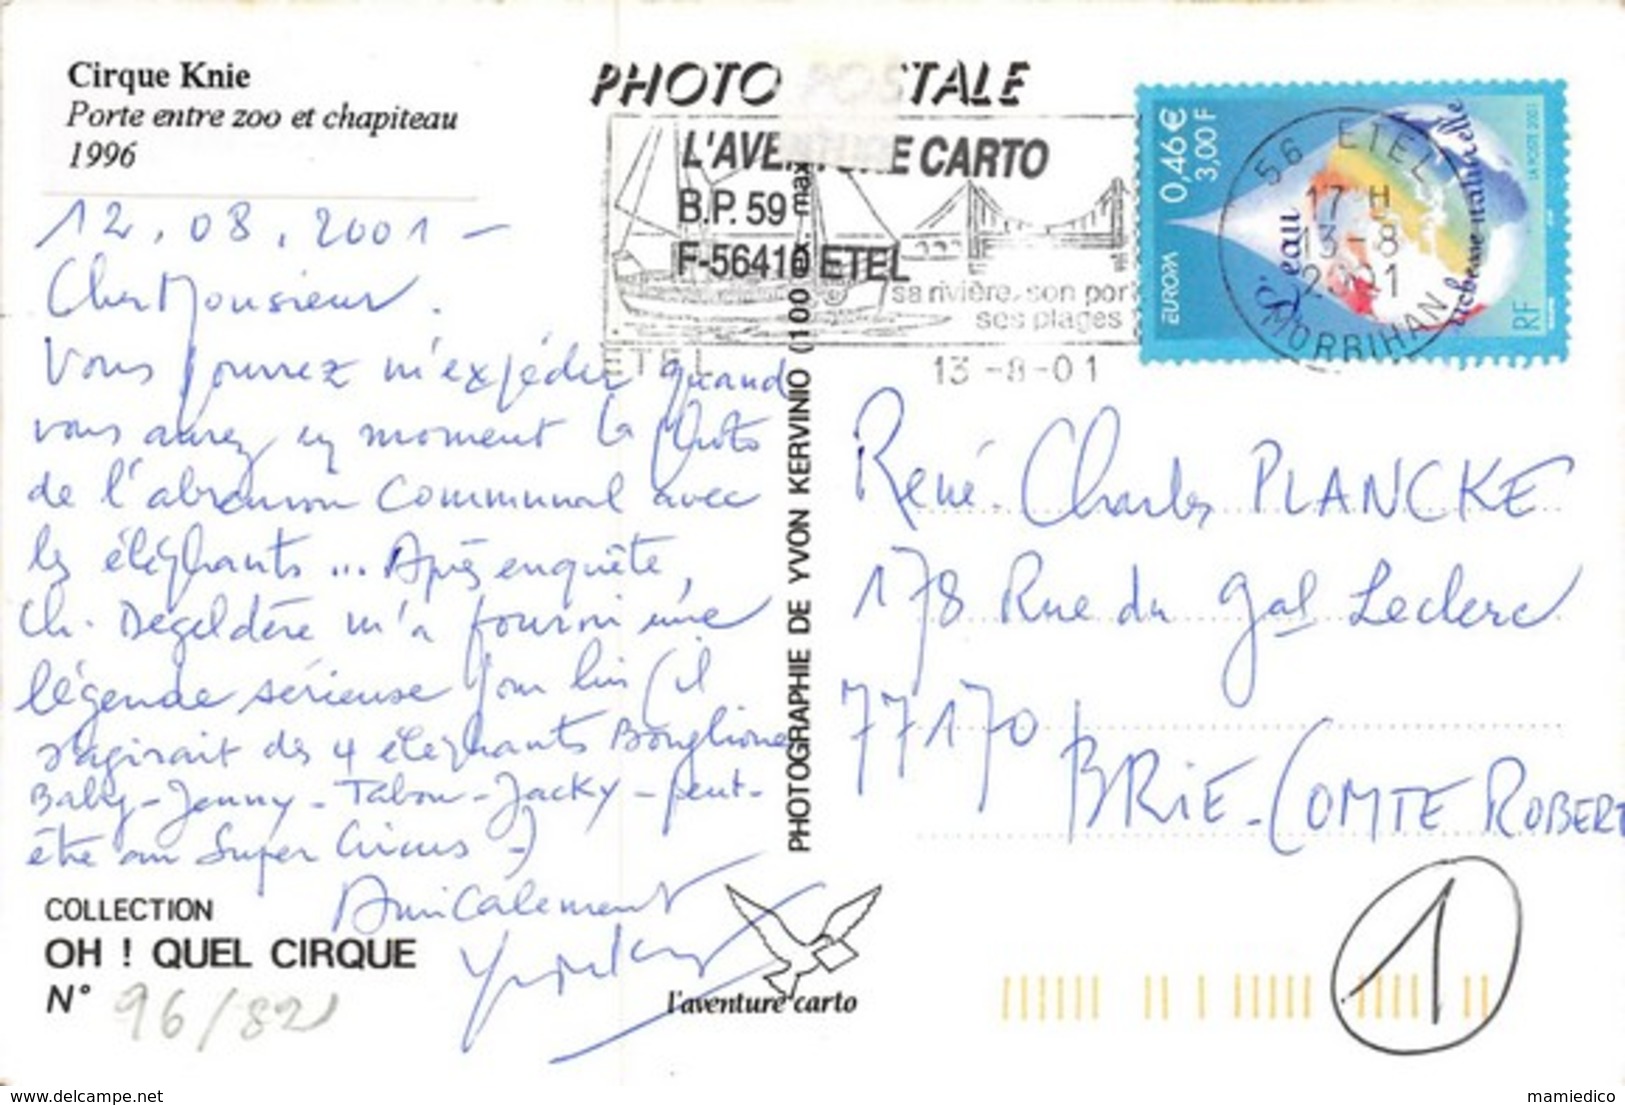 Cirque Knie
Porte entre zoo et chapiteau
1996
12.08.2001 -
Cher Monsieur.
Vous pourrez m'expédier quand
vous aurez un moment la photo
de l'abreuvoir Communal avec
les éléphants ... Après enquête,
Ch. Degeldère m'a fourni une
légende sérieuse pour lui (il
s'agirait des 4 éléphants Bouglione
Baby - Jenny - Tabou - Jacky - peut-
être au Super Circus -)
Amicalement
COLLECTION
OH ! QUEL CIRQUE
N° 96/82
PHOTO POSTALE
L'AVENTURE CARTO
B.P. 59
F-56410 ETEL
sa rivière, son port
ses plages
ETEL
13-8-01
PHOTOGRAPHIE DE YVON KERVINIO (100 ex. max
l'aventure carto
0,46 €
3,00 F
EUROPA
L'eau
richesse naturelle
LA POSTE 2001
RF
56 ETEL
17 H
13-8
2001
MORBIHAN
René-Charles PLANCKE
178 Rue du Gal Leclerc
77170
BRIE-COMTE ROBERT
1
www.delcampe.net
mamiedico